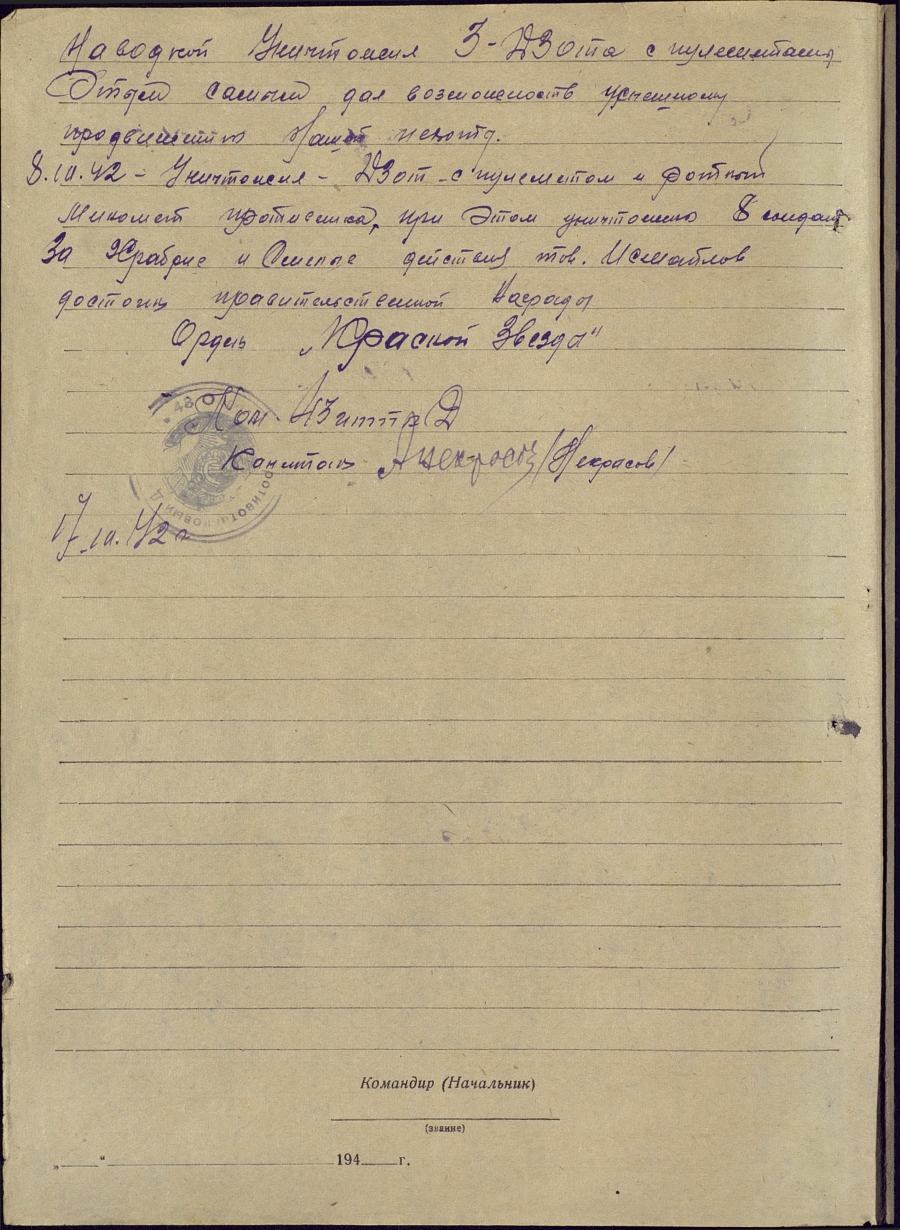 Наводкой Уничтожил 3-ДЗота с пулеметами
Этим самым дал возможность успешному
продвижению Нашей пехоты.
8.III.42 - Уничтожил - ДЗот с пулеметом и ротный
Миномет противника, при Этом уничтожено 8 солдат
За Храбрые и Смелые действия тов. Исмаилов
достоин правительственной Награды
Орден „Красной Звезды"
Ком. 43
Капитан Некрасов /Некрасов/
17.III.42 г
Командир (Начальник)
(звание)
„ “ 194 г.